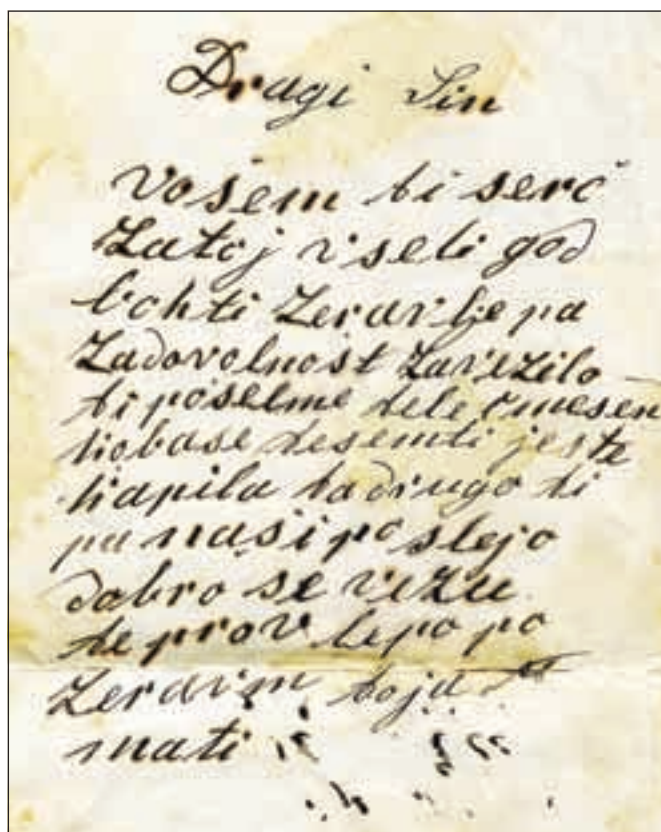 Dragi Sin
vošem ti serč
Zatoj vseli god
boh ti Zeravlje pa
Zadovolnost Zavezilo
ti pošelme tele čmesen
kobase desemti jeste
kapila ta drugo ti
pa naši po šlejo
dobro se vežu
te prov lepo po
Zeravim toja
mati